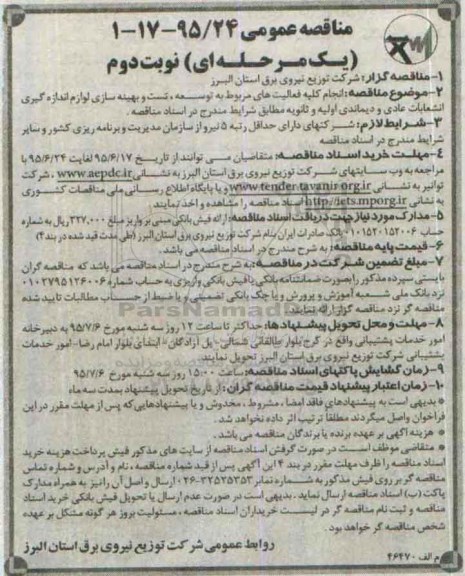 مناقصه عمومی ۹۵/۲۴-۱۷-۱
(یک مرحله‌ای) نوبت دوم
۱-مناقصه گزار: شرکت توزیع نیروی برق استان البرز
۲-موضوع مناقصه: انجام کلیه فعالیت های مربوط به توسعه، تست و بهینه سازی لوازم اندازه گیری
انشعابات عادی و دیماندی اولیه و ثانویه مطابق شرایط مندرج در اسناد مناقصه.
۳-شرایط لازم: شرکتهای دارای حداقل رتبه ۵ نیرو از سازمان مدیریت و برنامه ریزی کشور و سایر
شرایط مندرج در اسناد مناقصه
۴-مهلت خرید اسناد مناقصه: متقاضیان می توانند از تاریخ ۹۵/۶/۱۷ لغایت ۹۵/۶/۲۴ با
مراجعه به وب سایتهای شرکت توزیع نیروی برق استان البرز به نشانی www.aepdc.ir، شرکت
توانیر به نشانی www.tender.tavanir.org.ir و یا پایگاه اطلاع رسانی ملی مناقصات کشوری
به نشانی http://iets.mporg.ir اسناد مناقصه را مشاهده و اخذ نمایند
۵-مدارک مورد نیاز جهت دریافت اسناد مناقصه: ارائه فیش بانکی مبنی بر واریز مبلغ ۳۳۷,۰۰۰ ریال به شماره
حساب ۰۱۰۱۵۲۰۱۵۲۰۰۶ بانک صادرات ایران بنام شرکت توزیع نیروی برق استان البرز (طی مدت قید شده در بند ۴)
۶-قیمت پایه مناقصه: به شرح مندرج در اسناد مناقصه می باشد.
۷-مبلغ تضمین شرکت در مناقصه: به شرح مندرج در اسناد مناقصه می باشد که مناقصه گران
بایستی سپرده مذکور را بصورت ضمانتنامه بانکی یا فیش بانکی واریزی به حساب شماره ۰۱۰۲۷۹۵۱۲۶۰۰۶
نزد بانک ملی شعبه آموزش و پرورش و یا چک بانکی تضمینی و یا ضبط از حساب مطالبات تایید شده
مناقصه گر نزد مناقصه گزار ارائه نمایند.
۸-مهلت و محل تحویل پیشنهادها: حداکثر تا ساعت ۱۲ روز سه شنبه مورخ ۹۵/۷/۶ به دبیرخانه
امور خدمات پشتیبانی واقع در کرج بلوار طالقانی شمالی- پل آزادگان - ابتدای بلوار امام رضا- امور خدمات
پشتیبانی شرکت توزیع نیروی برق استان البرز تحویل نمایند.
۹-زمان گشایش پاکتهای اسناد مناقصه: ساعت ۱۵:۰۰ روز سه شنبه مورخ ۹۵/۷/۶
۱۰-زمان اعتبار پیشنهاد قیمت مناقصه گران: از تاریخ تحویل پیشنهاد بمدت سه ماه
* بدیهی است به پیشنهادهای فاقد امضا، مشروط، مخدوش و یا پیشنهادهایی که پس از مهلت مقرر در این
فراخوان واصل میگردند مطلقاً ترتیب اثر داده نخواهد شد.
* هزینه آگهی بر عهده برنده یا برندگان مناقصه می باشد.
* متقاضی موظف است در صورت گرفتن اسناد مناقصه از سایت های مذکور فیش پرداخت هزینه خرید
اسناد مناقصه را ظرف مهلت مقرر در بند ۴ این آگهی پس از قید شماره مناقصه، نام و آدرس و شماره تماس
مناقصه گر بر روی فیش مذکور به شماره نمابر ۳۲۵۲۵۳۵۳-۰۲۶ ارسال و اصل آن را نیز به همراه مدارک
پاکت (ب) اسناد مناقصه ارسال نماید. بدیهی است در صورت عدم ارسال یا تحویل فیش بانکی خرید اسناد
مناقصه و ثبت نام مناقصه گر در لیست خریداران اسناد مناقصه، مسئولیت بروز هر گونه مشکل بر عهده
شخص مناقصه گر خواهد بود.
روابط عمومی شرکت توزیع نیروی برق استان البرز
م الف ۴۶۴۷۰
ParsNamadData